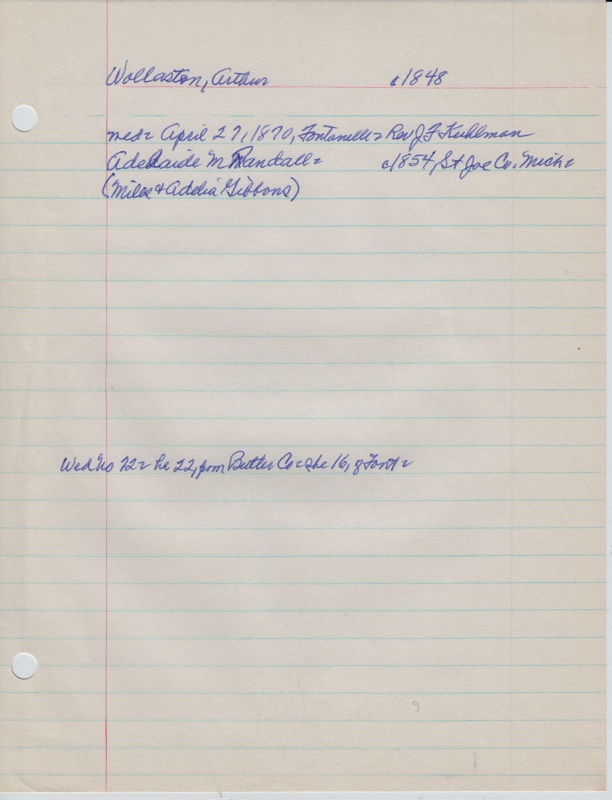 Wollaston, Arthur c1848
wed= April 27, 1870, Fontanelle= Rev J F Kuhlman
Adelaide M Randall= c1854, St Joe Co, Mich=
(Miles & Adelia Gibbons)
Wed No 72= he 22, from Butler Co= she 16, of Font=
9